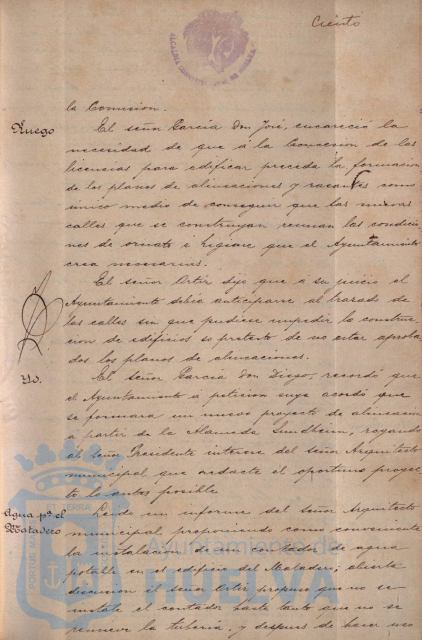 Ciento
la Comision.
Ruego
El señor García Don José, encareció la
necesidad de que á la concesion de las
licencias para edificar preceda la formacion
de los planos de alineaciones y rasantes como
único medio de conseguir que las nuevas
calles que se construyan reunan las condicio-
nes de ornato é higiene que el Ayuntamiento
crea necesarias.
El señor Ortiz dijo que á su juicio el
Ayuntamiento debia anticiparse al trazado de
las calles sin que pudiese impedir la construc-
cion de edificios so pretesto de no estar aproba-
dos los planos de alineaciones.
Yd.
El señor García Don Diego, recordó que
el Ayuntamiento á peticion suya acordó que
se formara un nuevo proyecto de alineacion
á partir de la Alameda Sundheim, rogando
al señor Presidente interese del señor Arquitecto
municipal que redacte el oportuno proyec-
to lo antes posible
Agua pª el
Matadero
Leido un informe del señor Arquitecto
municipal proponiendo como conveniente
la instalacion de un contador de agua
potable en el edificio del Matadero; abierta
discusion el señor Ortiz propuso que no se
instale el contador hasta tanto que no se
renueve la tuberia, y despues de hacer uso
Ayuntamiento de
HUELVA